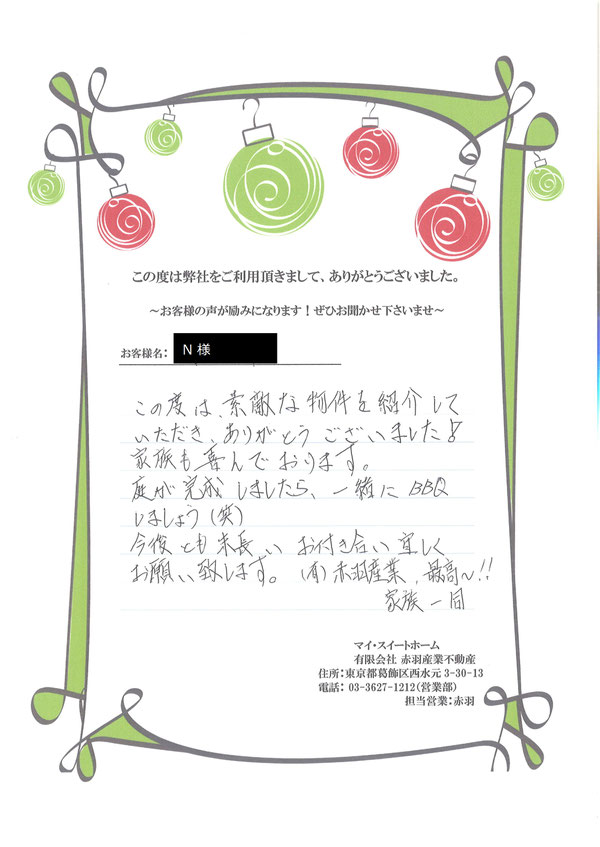 この度は弊社をご利用頂きまして、ありがとうございました。
～お客様の声が励みになります！ぜひお聞かせ下さいませ～
お客様名： N 様
この度は、素敵な物件を紹介して
いただき、ありがとうございました!
家族も喜んでおります。
庭が完成しましたら、一緒にBBQ
しましょう(笑)
今後とも末長いお付き合い宜しく
お願い致します。(有)赤羽産業、最高〜!!
家族一同
マイ・スイートホーム
有限会社 赤羽産業不動産
住所：東京都葛飾区西水元 3-30-13
電話： 03-3627-1212（営業部）
担当営業：赤羽